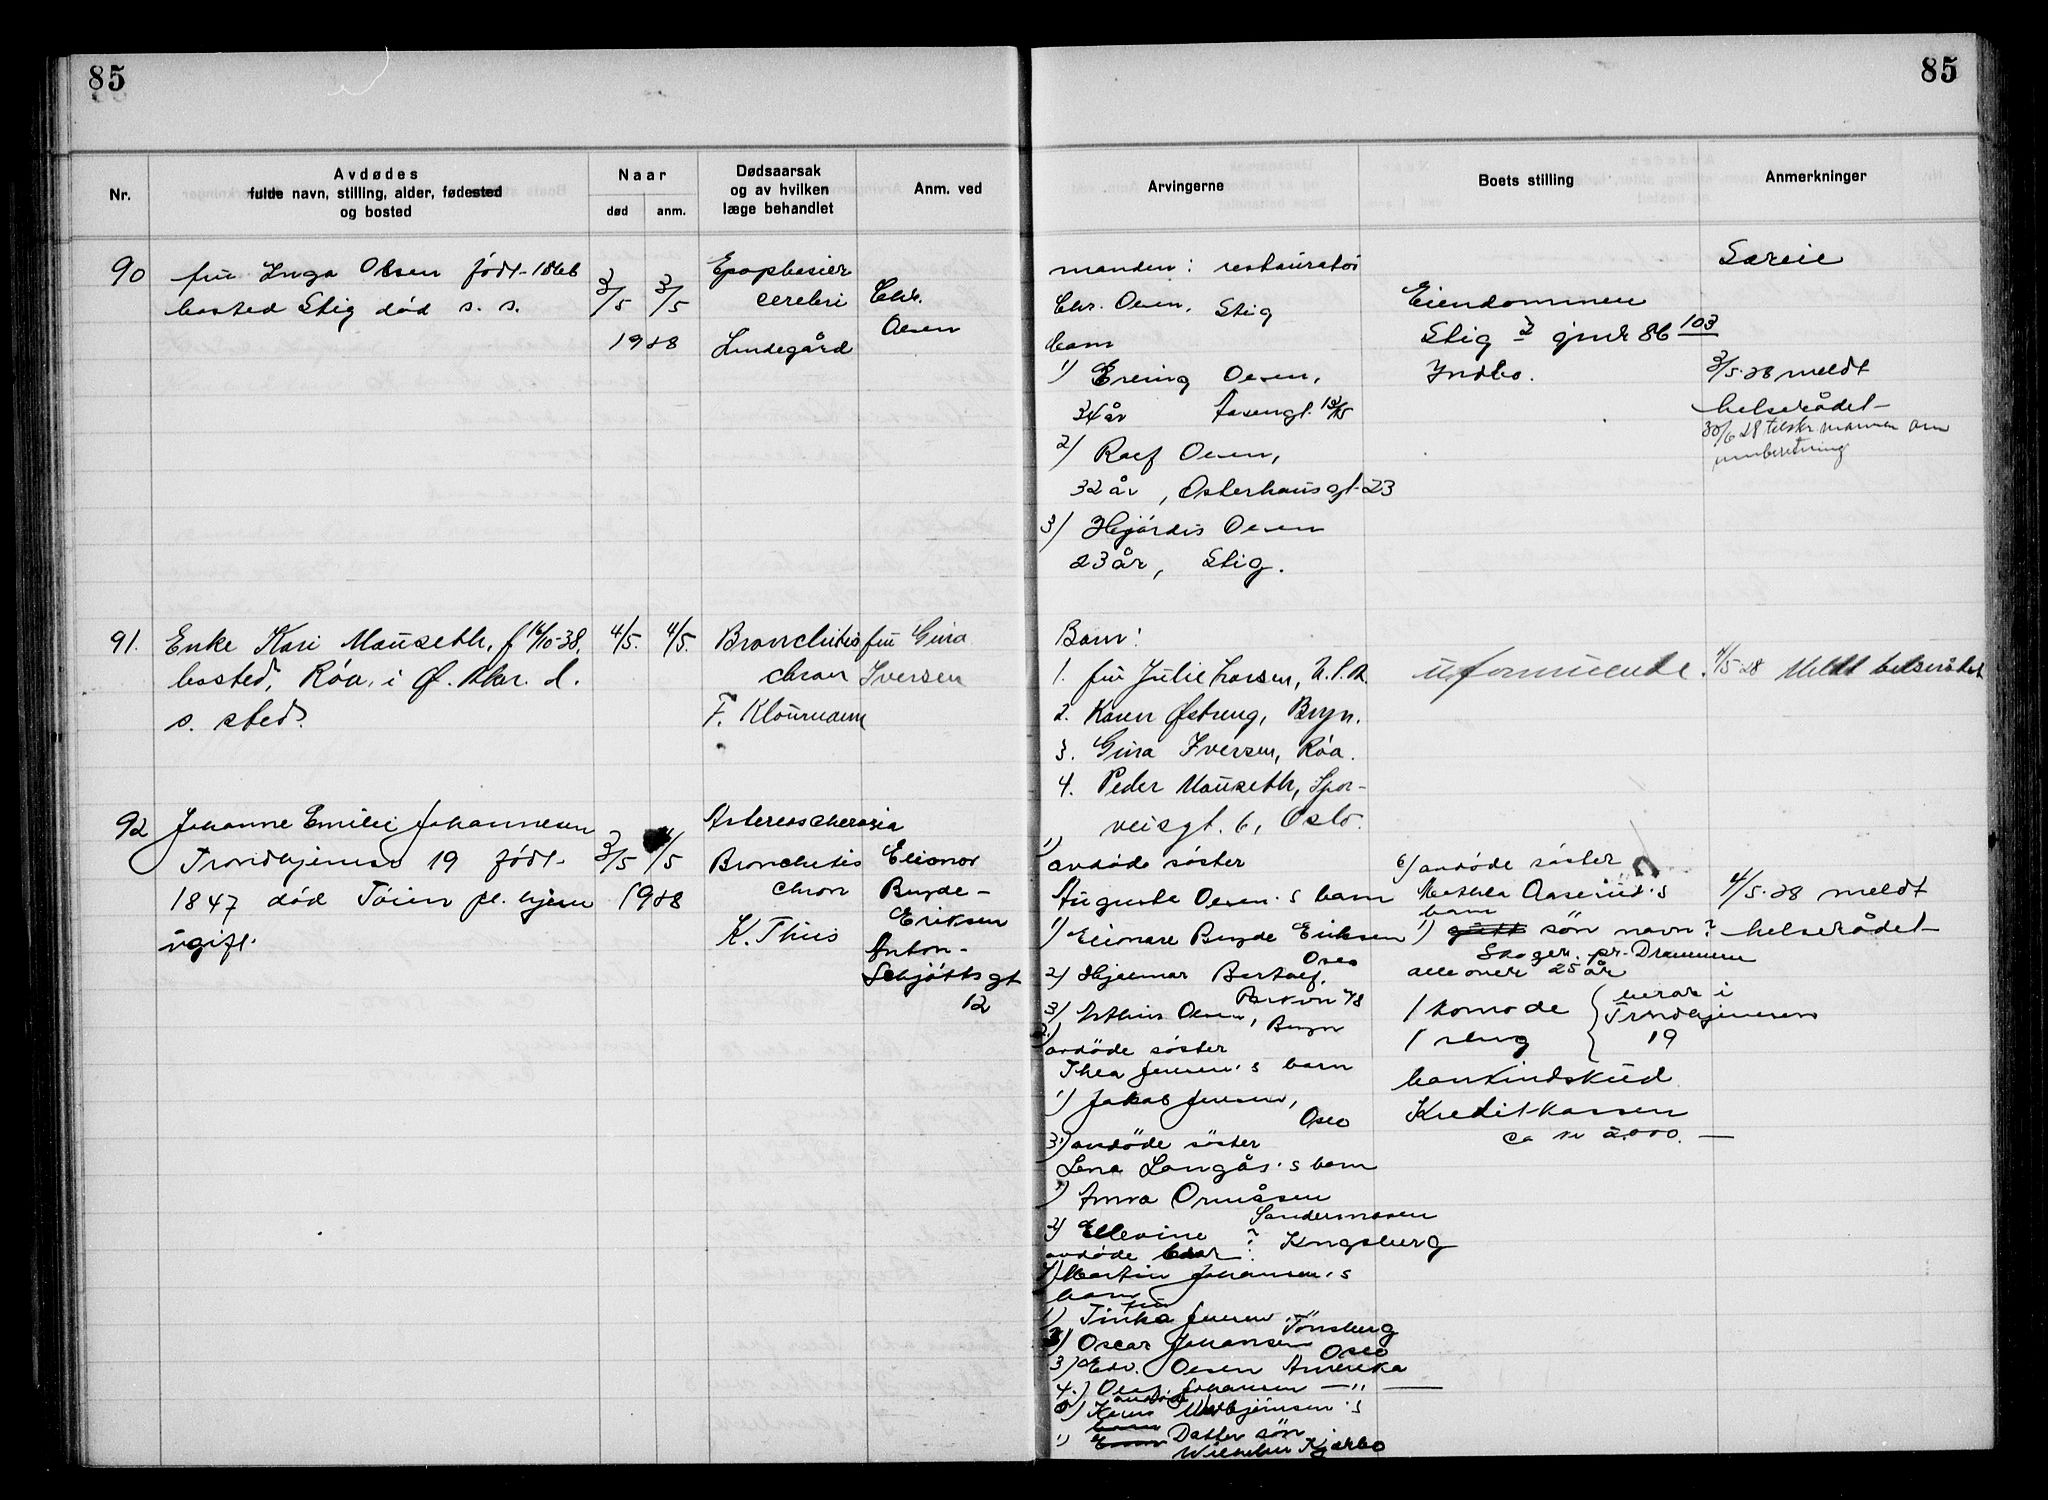 85
85
Nr.
Avdødes
fulde navn, stilling, alder, fødested
og bosted
Naar
død
anm.
Dødsaarsak
og av hvilken
læge behandlet
Anm. ved
Arvingerne
Boets stilling
Anmerkninger
90
fru Inga Olsen født 1866
bosted Stig død s. s.
3/5
3/5
1928
cerebri
Lindegård
Chr.
Olsen
manden: restauratør
Chr. Olsen, Stig
barn
1) Erling Olsen,
34 år
2) Rolf Olsen,
32 år, Osterhausgt. 23
3) Hjördis Olsen
23 år, Stig.
Eiendommen
Stig gnr 86
103
Indbo.
Særeie
3/5-28 meldt
helserådet
30/6 28 tilskr mannen om
innberetning
91.
Enke Kari Mauseth, f 16/10-38,
bosted, Røa, i Ø. Aker. d.
s. sted.
4/5.
4/5.
Bronchitis
chron
F. Klaumann
fru Gina
Iversen
Barn:
1. fru Julie Larsen, U.S.A.
2. Karen Østreng, Bryn.
3. Gina Iversen, Røa.
4. Peder Mauseth, Spor-
veisgt. 6, Oslo.
uformuende.
4/5-28 Meldt helserådet
92
Johanne Emilie Johannesen
Trondhjemsv 19 født
1847 død Töien pl. hjem
ugift.
3/5
4/5
1928
Bronchitis
chron
K. Thiis
Elionor
Bryde-
Eriksen
Anton-
Schjöttsgt
12
1)
avdöde söster
Auguste Olsen's barn
1) Elionore Bryde Eriksen
Oslo
2) Hjalmar
Parkvn 48
3) Olsen, Bryn
2)
avdöde söster
Thea Jensen's barn
1) Jakob Jensen,
Oslo
3) avdöde söster
Lena Langås's barn
1) Anna
Sandermosen
2) Ellevine ? Kongsberg
avdöde bror:
4) Martin Johansen's
barn
fru
1) Tinka Jensen Tönsberg
2) Oscar Johansen
Oslo
3) Edv. Olsen Amerika
4.) Olaf Johansen —"—
avdöde
5)
barn
1) Datter sön
Wilhelm Kjærbo
6) avdöde söster
Mathea Aaserud's
barn
1) sön navn?
Skoger. pr. Drammen
alle over 25 år
1 komode
1 seng
beror i
Trondhjemsvn
19
bankindskud
Kreditkassen
ca kr 2,000.—
4/5-28 meldt
helserådet